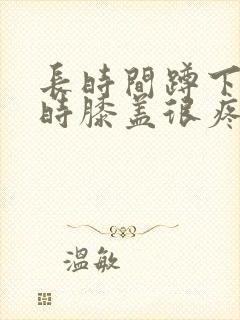 長時間蹲下
時膝盖很疼
溫敏